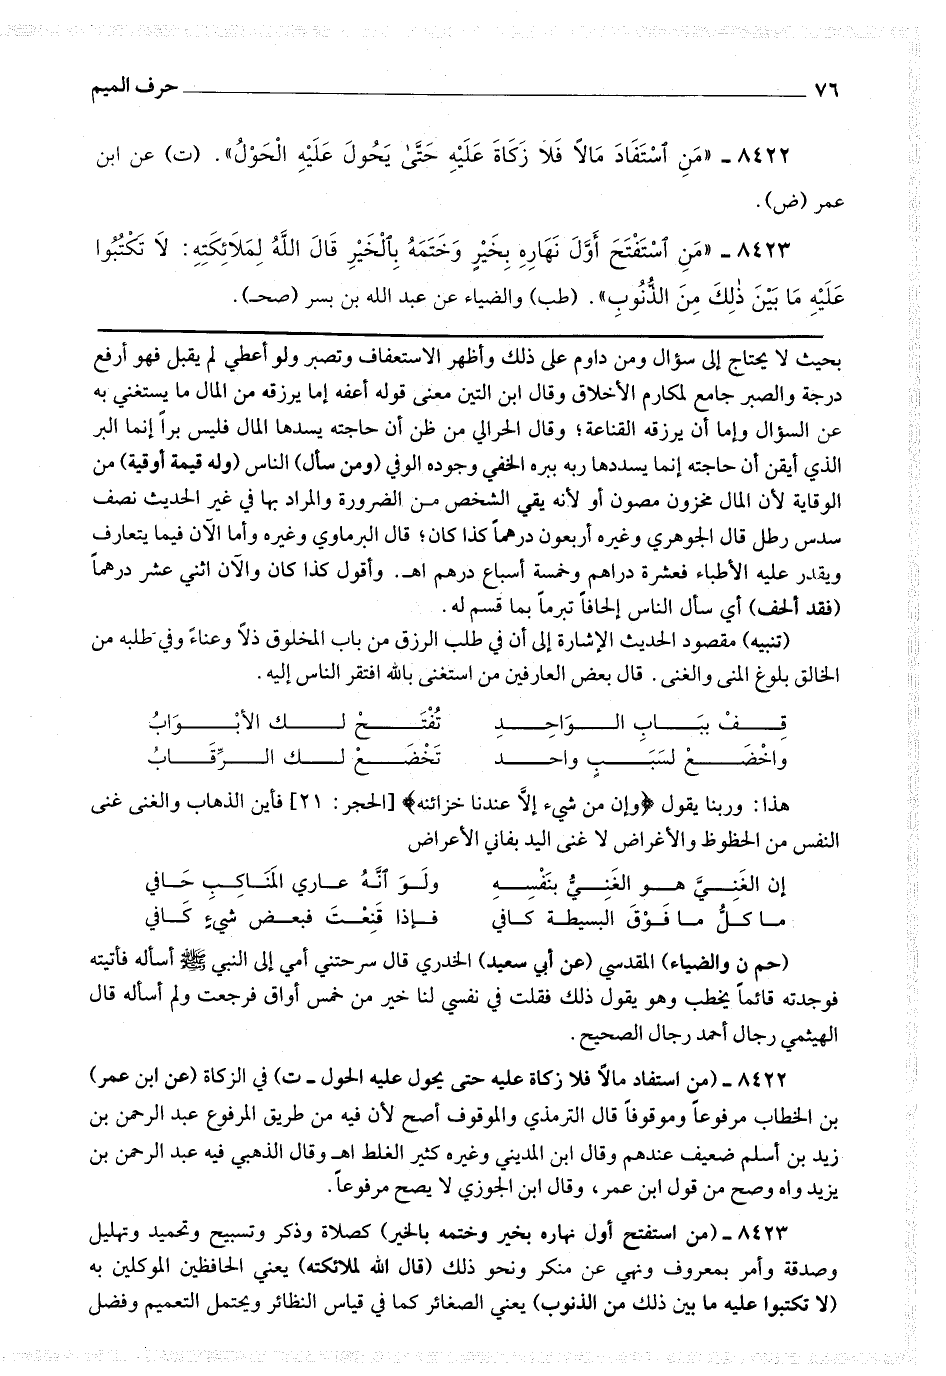 ٧٦ حرف الميم
٨٤٢٢ ـ «مَنِ ٱسْتَفَادَ مَالاً فَلاَ زَكَاةَ عَلَيْهِ حَتَّىٰ يَحُولَ عَلَيْهِ الْحَوْلُ». (ت) عن ابن
عمر (ض).
٨٤٢٣ ـ «مَنِ ٱسْتَفْتَحَ أَوَّلَ نَهَارِهِ بِخَيْرٍ وَخَتَمَهُ بِٱلْخَيْرِ قَالَ اللَّهُ لِمَلاَئِكَتِهِ: لاَ تَكْتُبُوا
عَلَيْهِ مَا بَيْنَ ذٰلِكَ مِنَ الذُّنُوبِ». (طب) والضياء عن عبد الله بن بسر (صحـ).
بحيث لا يحتاج إلى سؤال ومن داوم على ذلك وأظهر الاستعفاف وتصبر ولو أعطي لم يقبل فهو أرفع
درجة والصبر جامع لمكارم الأخلاق وقال ابن التين معنى قوله أعفه إما يرزقه من المال ما يستغني به
عن السؤال وإما أن يرزقه القناعة؛ وقال الحرالي من ظن أن حاجته يسدها المال فليس براً إنما البر
الذي أيقن أن حاجته إنما يسددها ربه ببره الخفي وجوده الوفي (ومن سأل) الناس (وله قيمة أوقية) من
الوقاية لأن المال مخزون مصون أو لأنه يقي الشخص مـن الضرورة والمراد بها في غير الحديث نصف
سدس رطل قال الجوهري وغيره أربعون درهماً كذا كان؛ قال البرماوي وغيره وأما الآن فيما يتعارف
ويقدر عليه الأطباء فعشرة دراهم وخمسة أسباع درهم اهـ. وأقول كذا كان والآن اثني عشر درهماً
(فقد ألحف) أي سأل الناس إلحافاً تبرماً بما قسم له.
(تنبيه) مقصود الحديث الإشارة إلى أن في طلب الرزق من باب المخلوق ذلاً وعناءً وفي طلبه من
الخالق بلوغ المنى والغنى. قال بعض العارفين من استغنى بالله افتقر الناس إليه.
قِـفْ بِبَـابِ الـوَاحِـدِ تُفْتَـحْ لـك الأَبْـوَابُ
واخْضَـعْ لسَبَـبٍ واحـد تَخْضَـعْ لـك الـرِّقَـابُ
هذا: وربنا يقول ﴿وإن من شيء إلاَّ عندنا خزائنه﴾ [الحجر: ٢١] فأين الذهاب والغنى غنى
النفس من الحظوظ والأغراض لا غنى اليد بفاني الأعراض
إن الغَنِـيَّ هـو الغَنِـيُّ بنَفْسِـهِ ولَـوَ ٱنَّـهُ عـاري المَنَـاكِـبِ حَـافي
مـا كـلُّ مـا فَـوْقَ البسيطـة كـافي فـإذا قَنِعْـتَ فبعـض شيءٍ كَـافي
(حم ن والضياء) المقدسي (عن أبي سعيد) الخدري قال سرحتني أمي إلى النبي ﷺ أسأله فأتيته
فوجدته قائماً يخطب وهو يقول ذلك فقلت في نفسي لنا خير من خمس أواق فرجعت ولم أسأله قال
الهيثمي رجال أحمد رجال الصحيح.
٨٤٢٢ ـ (من استفاد مالاً فلا زكاة عليه حتى يحول عليه الحول ـ ت) في الزكاة (عن ابن عمر)
بن الخطاب مرفوعاً وموقوفاً قال الترمذي والموقوف أصح لأن فيه من طريق المرفوع عبد الرحمن بن
زيد بن أسلم ضعيف عندهم وقال ابن المديني وغيره كثير الغلط اهـ وقال الذهبي فيه عبد الرحمن بن
يزيد واه وصح من قول ابن عمر، وقال ابن الجوزي لا يصح مرفوعاً.
٨٤٢٣ ـ (من استفتح أول نهاره بخير وختمه بالخير) كصلاة وذكر وتسبيح وتحميد وتهليل
وصدقة وأمر بمعروف ونهي عن منكر ونحو ذلك (قال الله لملائكته) يعني الحافظين الموكلين به
(لا تكتبوا عليه ما بين ذلك من الذنوب) يعني الصغائر كما في قياس النظائر ويحتمل التعميم وفضل